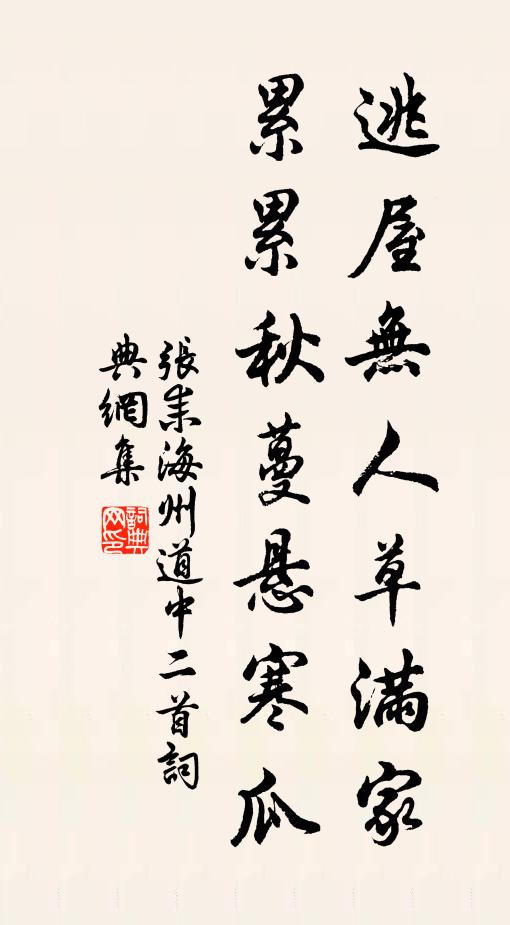 逃屋無人草滿家
累累秋蔓懸寒瓜
張耒海州道中二首詞
典網集
詞典
网印